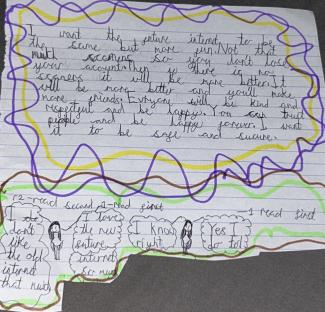 I want the future internet to be
the same but more fun. Not that
much scammers so you don't lose
your account. When there is no
scammers it will be more better. It
will be more better and you'll make
more friends. Everyone will be kind and
respectful and be happy. You can trust
people and be happy forever. I want
it to be safe and secure.
2-read second 1-read first
1 read first
I do
don't
like
the old
internet
that much
I love
the new
future
internet
so much
I know
right
Yes I
do to!